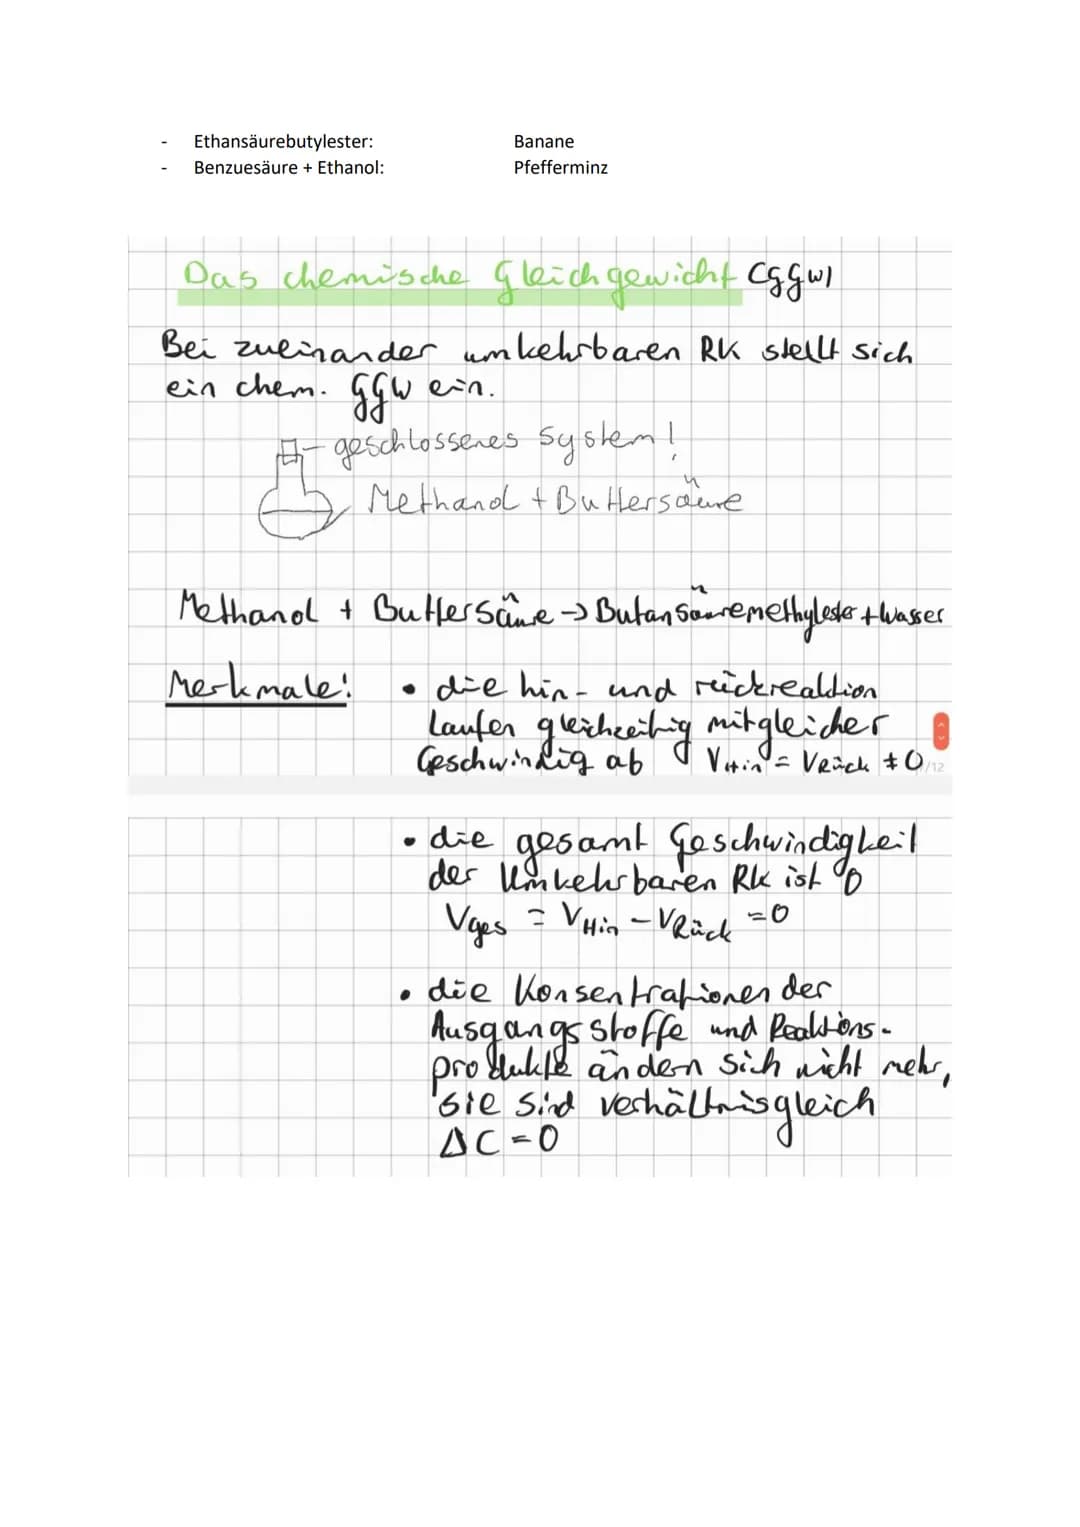 - Ethansäurebutylester: Banane
- Benzuesäure + Ethanol: Pfefferminz
Das chemische Gleichgewicht (GGW)
Bei zueinander umkehrbaren RK stellt sich
ein chem. GGW ein.
geschlossenes System!
Methanol + Buttersäure
Methanol + Buttersäure → Butansäuremethylester + Wasser
Merkmale: • die hin- und rückreaktion
Laufen gleichzeitig mit gleicher
Geschwindig ab VHin = VRück ≠ 0
/12
• die gesamt Geschwindigkeit
der Umkehrbaren RK ist 0
Vges = VHin - VRück = 0
• die Konsentrationen der
Ausgangsstoffe und Reaktions-
produkte ändern sich nicht mehr,
sie sind verhältnisgleich
ΔC = 0